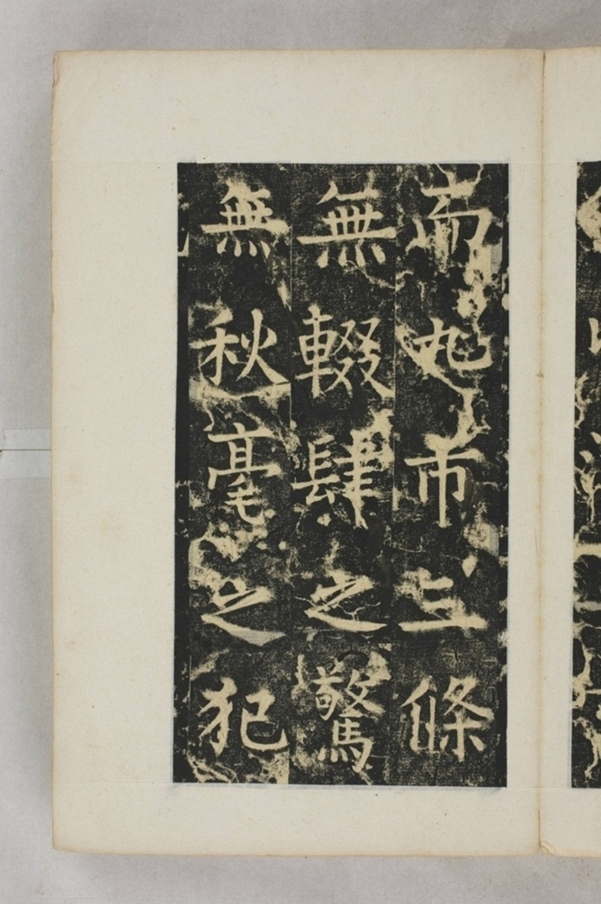 而九市三條
無輟肆之驚
無秋毫之犯